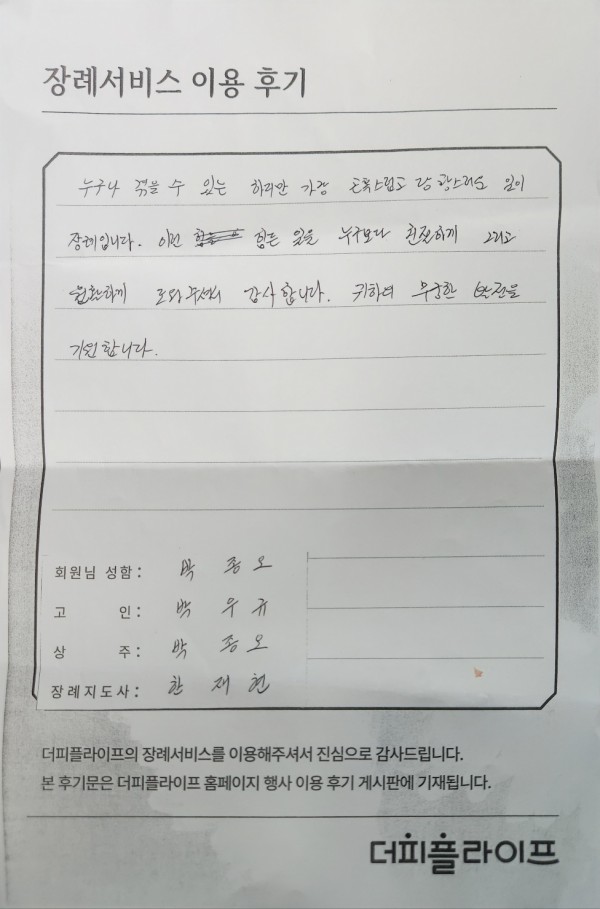 장례서비스 이용 후기
누구나 겪을 수 있는 하지만 가장 고통스럽고 당황스러운 일이
장례입니다. 이런 힘든 일을 누구보다 친절하게 그리고
원활하게 도와주셔서 감사합니다. 귀하의 무궁한 발전을
기원합니다.
회원님 성함: 박종오
고 인: 박우규
상 주: 박종오
장례지도사: 한재현
더피플라이프의 장례서비스를 이용해주셔서 진심으로 감사드립니다.
본 후기문은 더피플라이프 홈페이지 행사 이용 후기 게시판에 기재됩니다.
더피플라이프